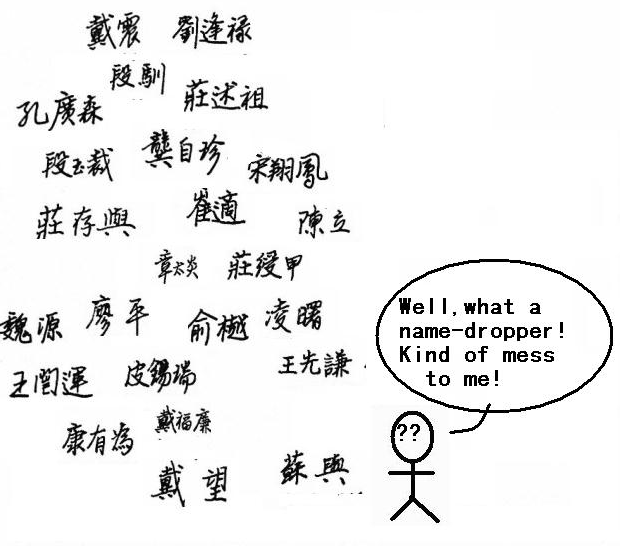 戴震 劉逢禄
段馴 莊述祖
孔廣森
龔自珍
段玉裁 宋翔鳳
莊存與 崔適 陳立
章太炎 莊綬甲
魏源 廖平 俞樾 凌曙
王闓運 皮錫瑞 王先謙
康有為 戴福廉
戴望 蘇輿
Well,what a
name-dropper!
Kind of mess
to me!
??